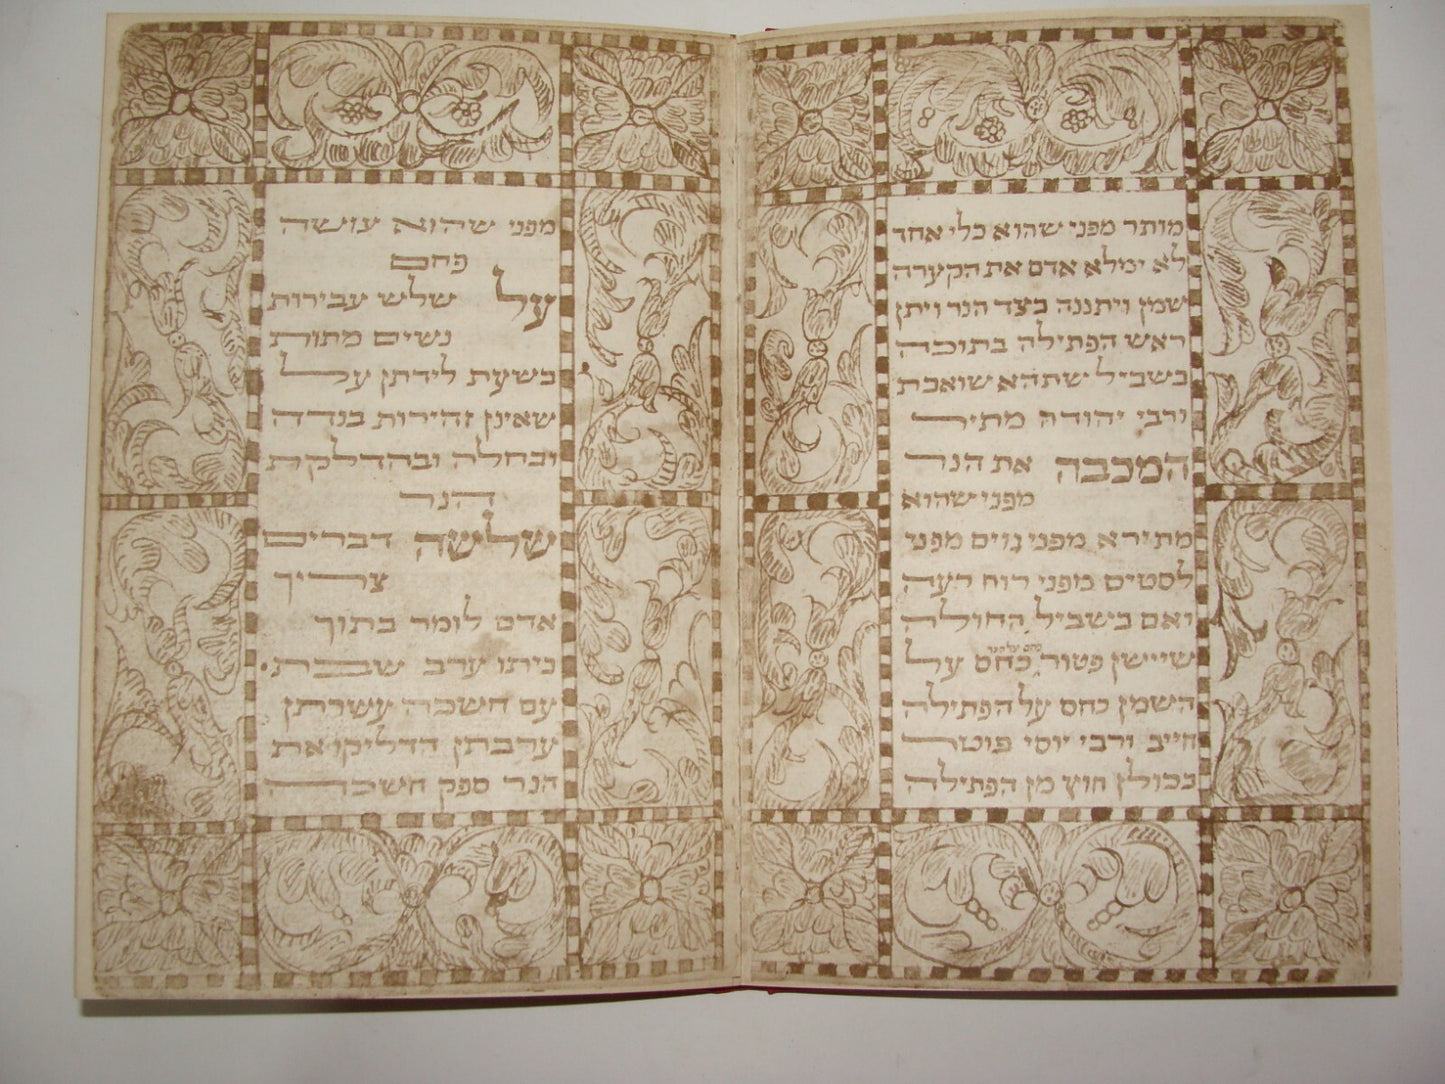 מותר מפני שהוא כלי אחד
לא ימלא אדם את הקערה
שמן ויתננה בצד הנר ויתן
ראש הפתילה בתוכה
בשביל שתהא שואבת
ורבי יהודה מתיר
המכבה את הנר
מפני שהוא
מתירא מפני גוים מפני
לסטים מפני רוח רעה
ואם בשביל החולה
כחס על הנר
שיישן פטור כחס על
השמן כחס על הפתילה
חייב ורבי יוסי פוטר
בכולן חוץ מן הפתילה
מפני שהוא עושה
פחם
על שלש עבירות
נשים מתות
בשעת לידתן על
שאינן זהירות בנדה
ובחלה ובהדלקת
הנר
שלשה דברים
צריך
אדם לומר בתוך
ביתו ערב שבת
עם חשכה עשרתן
ערבתן הדליקו את
הנר ספק חשכה